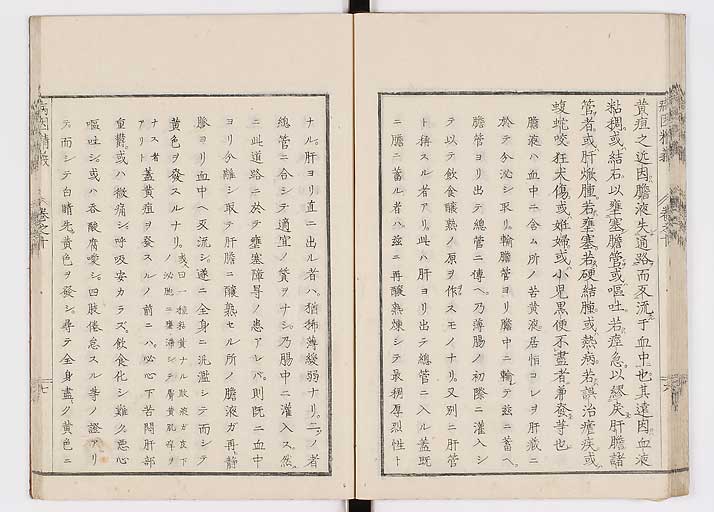 黄疸之近因膽液失通路而反流于血中也其遠因血液
粘稠或結石以壅塞膽管或嘔吐若痙急以繆戻肝膽諸
管者或肝燉腫若壅塞若硬結腫或熱病若誤治瘧疾或
蝮蛇咬狂犬傷或姙婦或小児黒便不盡者兼發等也
膽液ハ血中ニ含ム所ノ苦黄液居恒コレヲ肝蔵ニ
於テ分泌シ取リ輸膽管ヨリ膽中ニ輸テ玆ニ蓄ヘ
膽管ヨリ出テ總管ニ傳ヘ乃薄腸ノ初際ニ灌入シ
テ以テ飲食醸熟ノ原ヲ作スモノナリ又別ニ肝管
ト稱スル者アリ此ハ肝ヨリ出テ總管ニ入ル蓋既
ニ膽ニ蓄ル者ハ玆ニ再醸熟煉シテ最稠厚烈性ト
ナル肝ヨリ直ニ出ル者ハ猶稀薄緩弱ナリ二ノ者
總管ニ合シテ適宜ノ質ヲナシ乃腸中ニ灌入ス然
ニ此道路ニ於テ壅塞障㝵ノ患アレバ則既ニ血中
ヨリ分離シ取テ肝膽ニ醸熟セル所ノ膽液ガ再静
脉ヨリ血中ヘ反流シ遂ニ全身ニ汎濫シテ而シテ
黄色ヲ發スルナリ
ナス者アリト蓋黄疸ヲ發スルノ前ニハ必心下苦悶肝部
重鬱或ハ微痛シ呼吸安カラズ飲食化シ難ク悪心
嘔吐シ或ハ呑酸腐噯シ四肢倦怠スル等ノ證アリ
テ而シテ白睛先黄色ヲ發シ尋テ全身盡ク黄色ニ
病因精義
巻之十
七